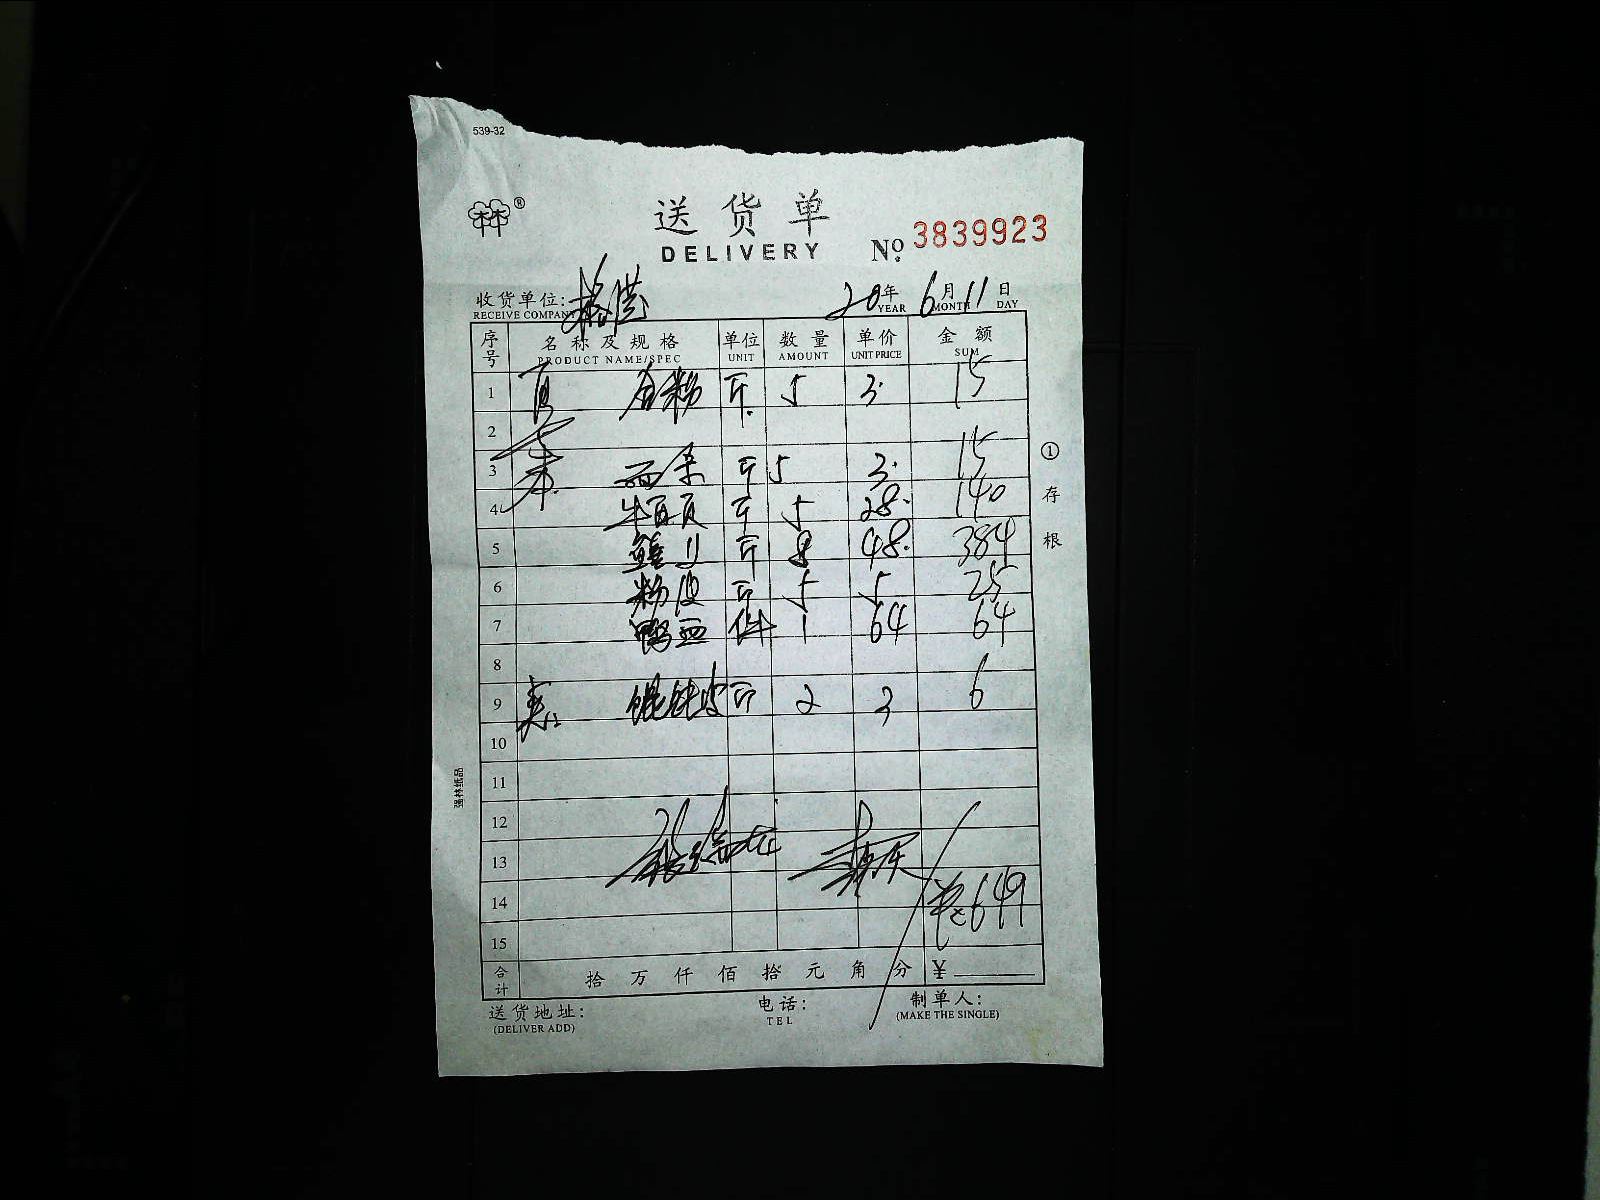 539-32
林®
送货单
DELIVERY
№ 3839923
收货单位:
RECEIVE COMPANY
20年 6月 11日
YEAR MONTH DAY
序号 名称及规格 单位 数量 单价 金额
PRODUCT NAME/SPEC UNIT AMOUNT UNIT PRICE SUM
1 斤 5 3. 15
2
3 斤 5 3. 15
4 牛百页 斤 5 28. 140
5 斤 8 48. 384
6 粉皮 斤 5 5 25
7 鸭血 件 1 64 64
8
9 馄饨皮 斤 2 3 6
10
11
12
13
14 649
15
合计 拾万仟佰拾元角分 ¥
送货地址:
(DELIVER ADD)
电话:
TEL
制单人:
(MAKE THE SINGLE)
①存根
强林纸品